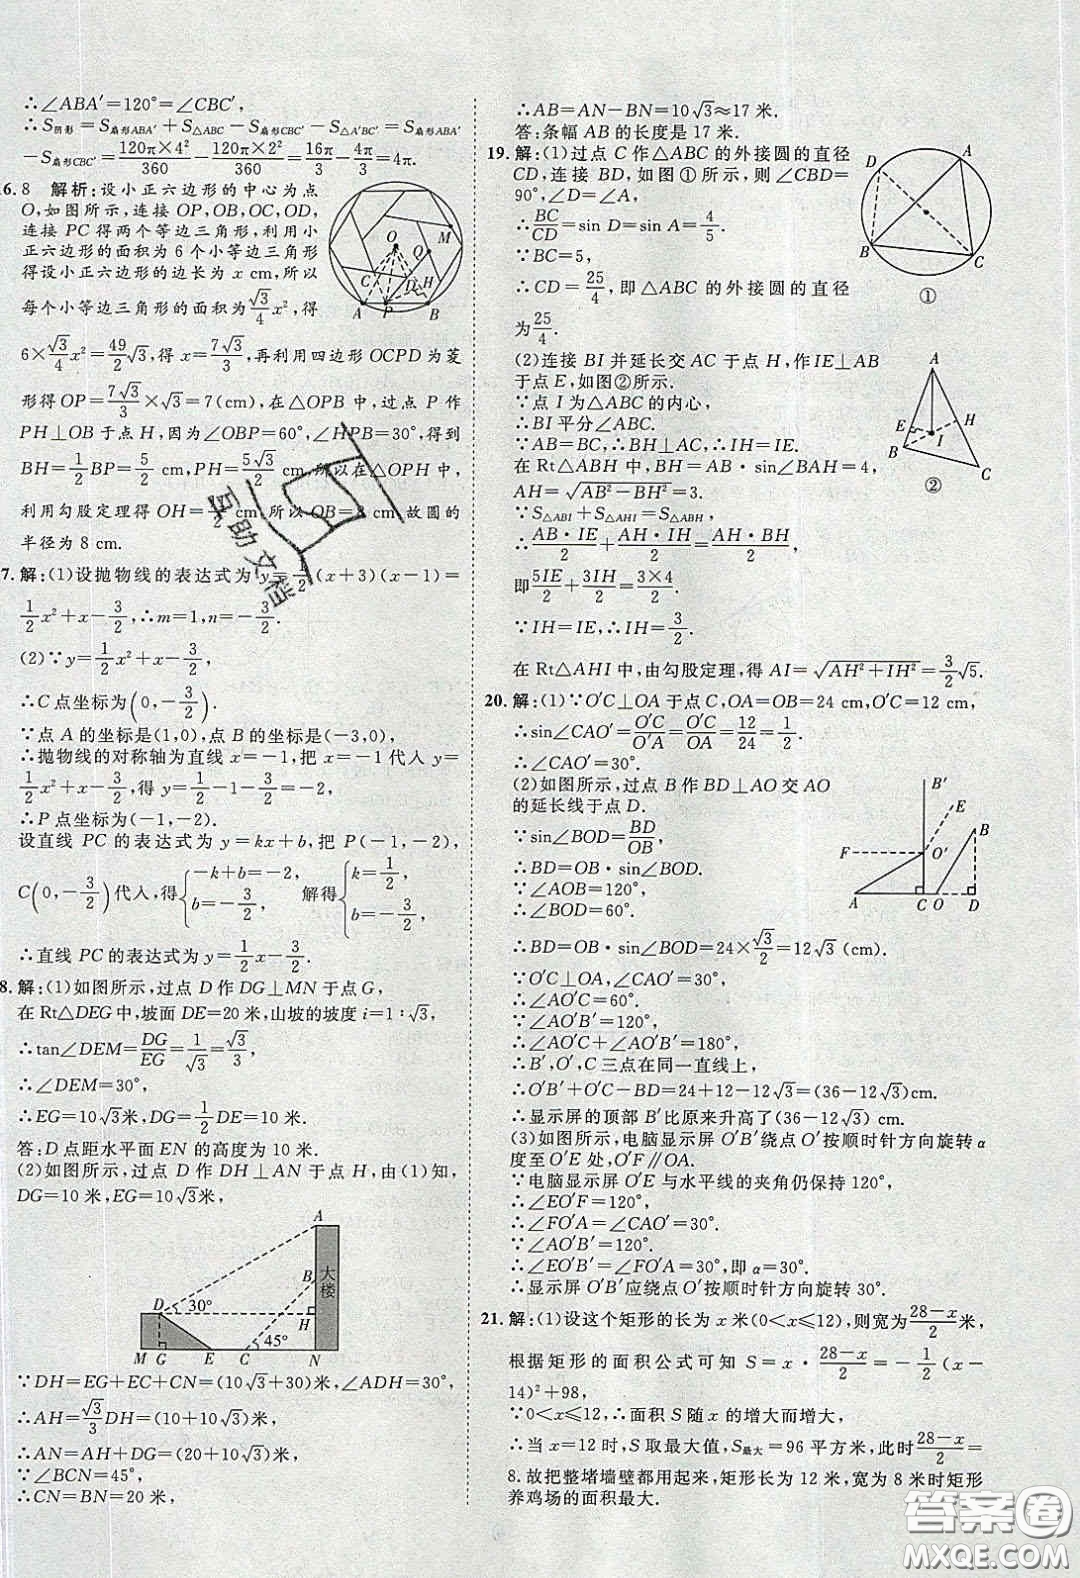 ∴∠ABA′=120°=∠CBC′,
∴S阴影=S扇形ABA′+S△ABC−S扇形CBC′−S△A′BC′=S扇形ABA′
−S扇形CBC′=120π×4²/360−120π×2²/360=16π/3−4π/3=4π.
6. 8 解析:设小正六边形的中心为点
O,如图所示,连接OP,OB,OC,OD,
连接PC得两个等边三角形,利用小
正六边形的面积为6个小等边三角形
得设小正六边形的边长为x cm,所以
每个小等边三角形的面积为√3/4x²,得
6×√3/4x²=49/2√3,得x=7√3/3,再利用四边形OCPD为菱
形得OP=7√3/3×√3=7(cm),在△OPB中,过点P作
PH⊥OB于点H,因为∠OBP=60°,∠HPB=30°,得到
BH=1/2BP=5/2 cm,PH=5√3/2 cm,所以在△OPH中,
利用勾股定理得OH=11/2 cm,所以OB=8 cm,故圆的
半径为8 cm.
O
M
Q
D
H
C
A
P
B
7. 解:(1)设抛物线的表达式为y=1/2(x+3)(x−1)=
1/2x²+x−3/2,∴m=1,n=−3/2.
(2)∵y=1/2x²+x−3/2,
∴C点坐标为(0,−3/2).
∵点A的坐标是(1,0),点B的坐标是(−3,0),
∴抛物线的对称轴为直线x=−1,把x=−1代入y=
1/2x²+x−3/2,得y=1/2−1−3/2=−2,
∴P点坐标为(−1,−2).
设直线PC的表达式为y=kx+b,把P(−1,−2),
C(0,−3/2)代入,得{−k+b=−2, b=−3/2, 解得{k=1/2, b=−3/2,
∴直线PC的表达式为y=1/2x−3/2.
8. 解:(1)如图所示,过点D作DG⊥MN于点G,
在Rt△DEG中,坡面DE=20米,山坡的坡度i=1∶√3,
∴tan∠DEM=DG/EG=1/√3=√3/3,
∴∠DEM=30°,
∴EG=10√3米,DG=1/2DE=10米.
答:D点距水平面EN的高度为10米.
(2)如图所示,过点D作DH⊥AN于点H,由(1)知,
DG=10米,EG=10√3米,
A
B
大楼
D
30°
H
45°
M G E C N
∵DH=EG+EC+CN=(10√3+30)米,∠ADH=30°,
∴AH=√3/3DH=(10+10√3)米,
∴AN=AH+DG=(20+10√3)米,
∵∠BCN=45°,
∴CN=BN=20米,
∴AB=AN−BN=10√3≈17米.
答:条幅AB的长度是17米.
19. 解:(1)过点C作△ABC的外接圆的直径
CD,连接BD,如图①所示,则∠CBD=
90°,∠D=∠A,
∴BC/CD=sin D=sin A=4/5.
∵BC=5,
∴CD=25/4,即△ABC的外接圆的直径
为25/4.
D
A
B
C
①
(2)连接BI并延长交AC于点H,作IE⊥AB
于点E,如图②所示.
∵点I为△ABC的内心,
∴BI平分∠ABC.
∵AB=BC,∴BH⊥AC,∴IH=IE.
在Rt△ABH中,BH=AB·sin∠BAH=4,
AH=√(AB²−BH²)=3.
∵S△ABI+S△AHI=S△ABH,
∴AB·IE/2+AH·IH/2=AH·BH/2,
即5IE/2+3IH/2=3×4/2.
∵IH=IE,∴IH=3/2.
在Rt△AHI中,由勾股定理,得AI=√(AH²+IH²)=3/2√5.
A
E
H
I
B
C
②
20. 解:(1)∵O′C⊥OA于点C,OA=OB=24 cm,O′C=12 cm,
∴sin∠CAO′=O′C/O′A=O′C/OA=12/24=1/2,
∴∠CAO′=30°.
(2)如图所示,过点B作BD⊥AO交AO
的延长线于点D.
∵sin∠BOD=BD/OB,
∴BD=OB·sin∠BOD.
∵∠AOB=120°,
∴∠BOD=60°,
∴BD=OB·sin∠BOD=24×√3/2=12√3 (cm).
B′
E
B
F
O′
A C O D
∵O′C⊥OA,∠CAO′=30°,
∴∠AO′C=60°.
∵∠AO′B′=120°,
∴∠AO′C+∠AO′B′=180°,
∴B′,O′,C三点在同一直线上,
∴O′B′+O′C−BD=24+12−12√3=(36−12√3)cm.
∴显示屏的顶部B′比原来升高了(36−12√3) cm.
(3)如图所示,电脑显示屏O′B′绕点O′按顺时针方向旋转α
度至O′E处,O′F∥OA.
∵电脑显示屏O′E与水平线的夹角仍保持120°,
∴∠EO′F=120°,
∴∠FO′A=∠CAO′=30°.
∵∠AO′B′=120°,
∴∠EO′B′=∠FO′A=30°,即α=30°.
∴显示屏O′B′应绕点O′按顺时针方向旋转30°.
21. 解:(1)设这个矩形的长为x米(0<x≤12),则宽为28−x/2米,
根据矩形的面积公式可知S=x·28−x/2=−1/2(x−
14)²+98,
∵0<x≤12,∴面积S随x的增大而增大,
∴当x=12时,S取最大值,S最大=96平方米,此时28−x/2=
8.故把整堵墙壁都用起来,矩形长为12米,宽为8米时矩形
养鸡场的面积最大.
互助文档
答案圈
MXQE.COM